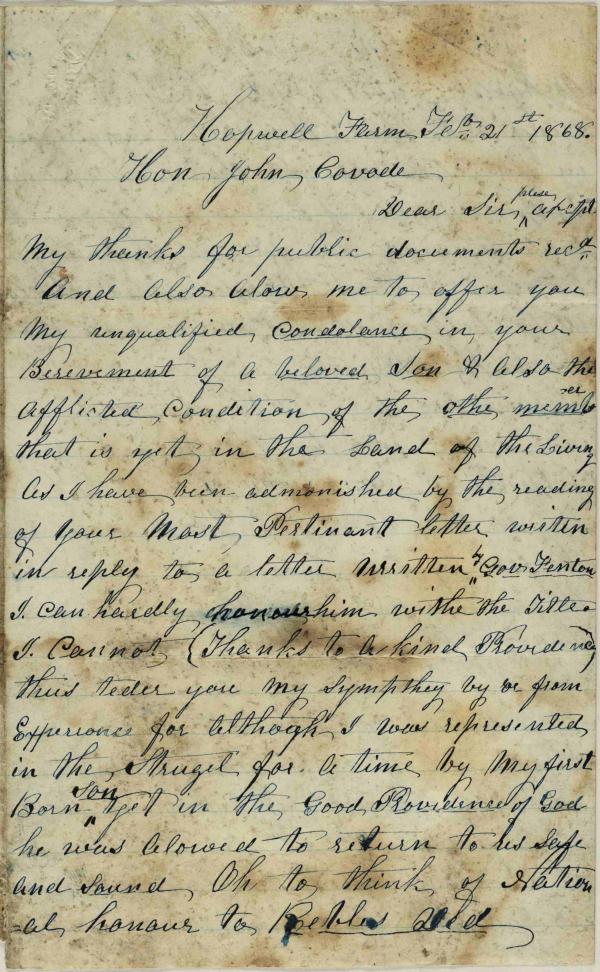 Hopwell Farm Feb 21st 1868.
Hon John Covode
Dear Sir, please accept
My thanks for public documents recd
And also alow me to offer you
My unqualified Condolance in your
Berevement of a beloved Son & also the
Afflicted Condition of the othe member
that is yet in the Land of the Living
As I have been admonished by the reading
of your Most Pertinant letter writen
in reply to a letter written by Gov Fenton
I can hardly honour him withe the Title
I Cannot (Thanks to a kind Providence)
thus teder you My Sympthey by or from
Experience for although I was represented
in the Strugel for a time by My first
Born son yet in the Good Providence of God
he was alowed to return to us Safe
And Sound Oh to think of Nation
=al honour to Rebbles Dead